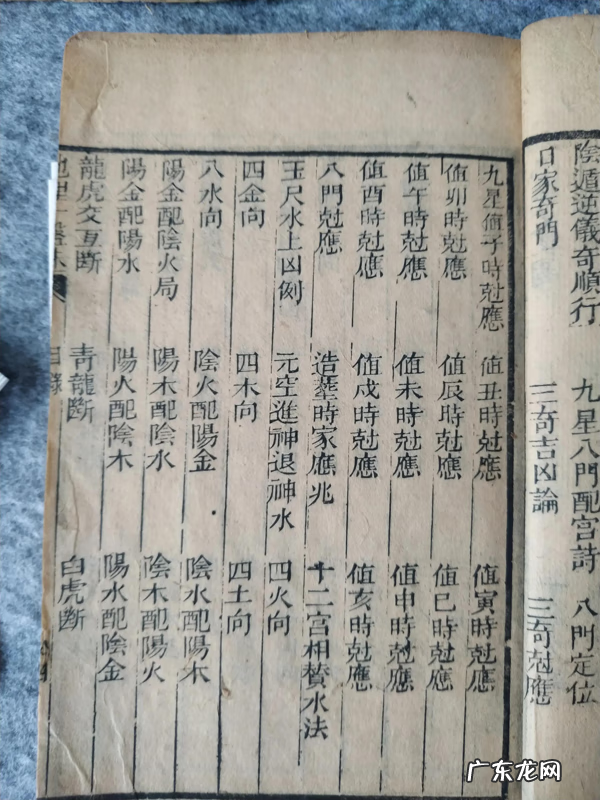 陰遁逆儀奇順行 九星八門配宮詩 八門定位
日家奇門 三奇吉凶論 三奇尅應
九星値子時尅應 値丑時尅應 値寅時尅應
値卯時尅應 値辰時尅應 値巳時尅應
値午時尅應 値未時尅應 値申時尅應
値酉時尅應 値戌時尅應 値亥時尅應
八門尅應 造塟時家應兆 十二宮相賛水法
玉尺水上凶例 元空進神退神水 四火向
四金向 四木向 四土向
八水向 陰火配陽金 陰水配陽木
陽金配陰火局 陽木配陰水 陰木配陽火
陽金配陽水 陽火配陰木 陽水配陰金
龍虎交互断 青龍断 白虎断
目錄
广东龙网